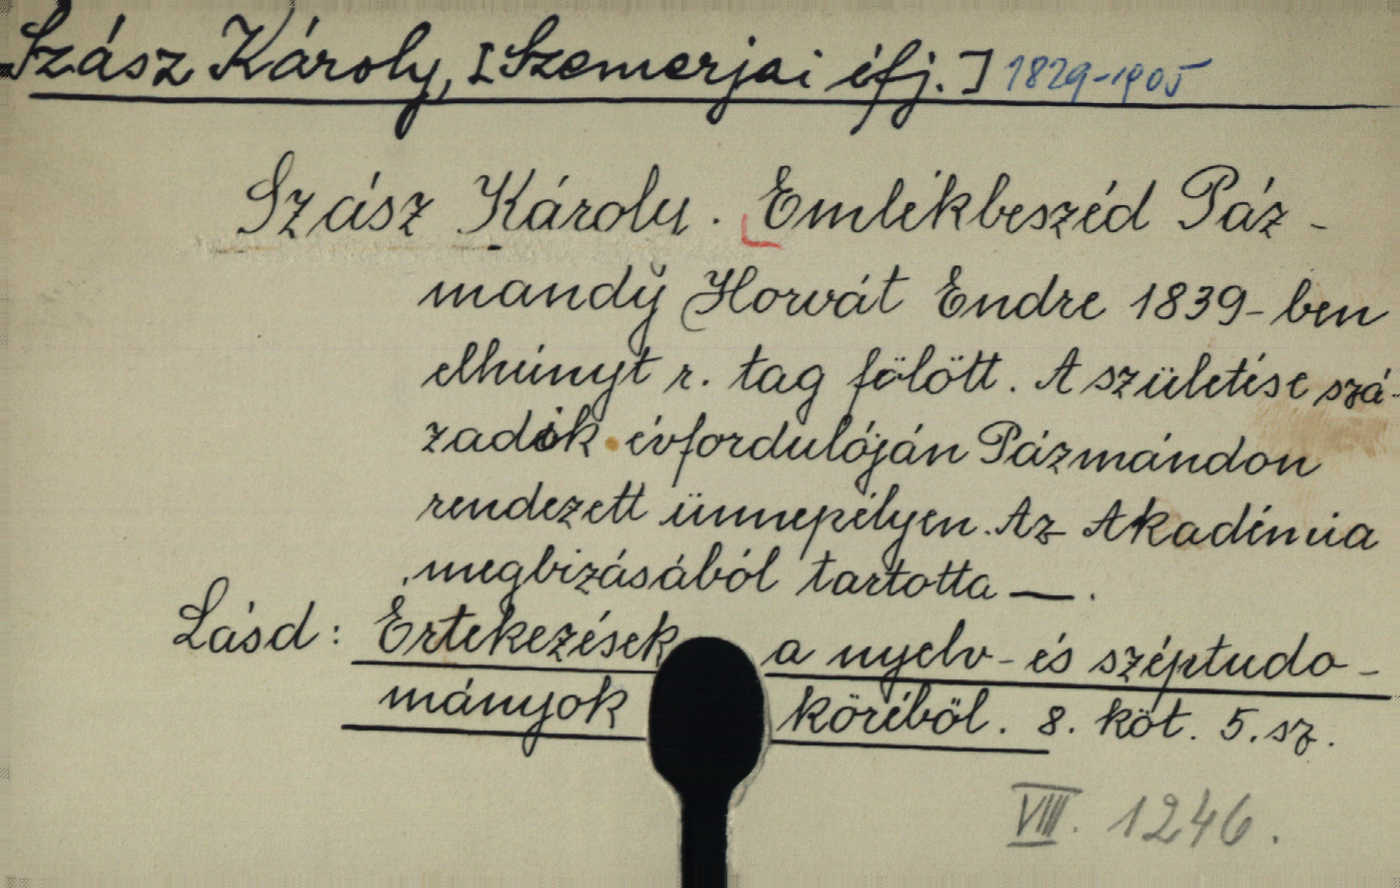 Szász Károly, [Szemerjai ifj.] 1829-1905
Szász Károly. Emlékbeszéd Páz-
mandy Horvát Endre 1839-ben
elhúnyt r. tag fölött. A születése szá-
zadik évfordulóján Pázmándon
rendezett ünnepélyen. Az Akadémia
megbizásából tartotta —.
Lásd: Értekezések a nyelv- és széptudo-
mányok köréböl. 8. köt. 5. sz.
VIII. 1246.